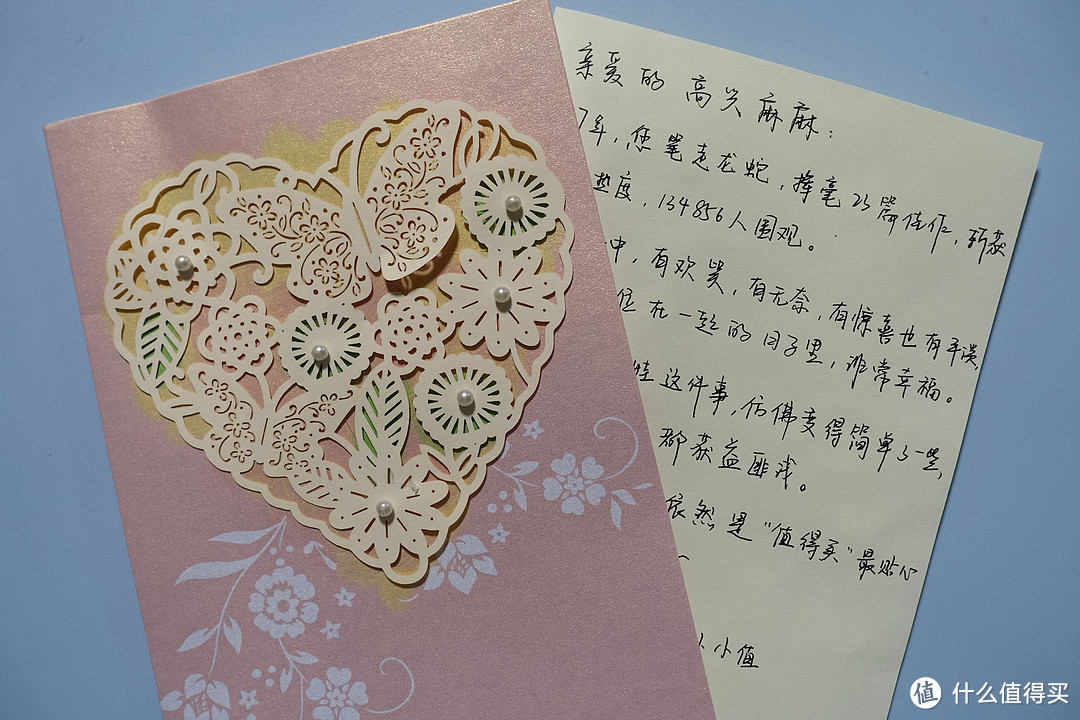 亲爱的 高兴麻麻：
7年，您笔走龙蛇，挥毫23篇佳作，斩获
热度，134856人围观。
中，有欢笑，有无奈，有惊喜也有平淡，
在一起的日子里，非常幸福。
娃这件事，仿佛变得简单了一些，
都获益匪浅。
依然是"值得买"最贴心
小值
值 什么值得买